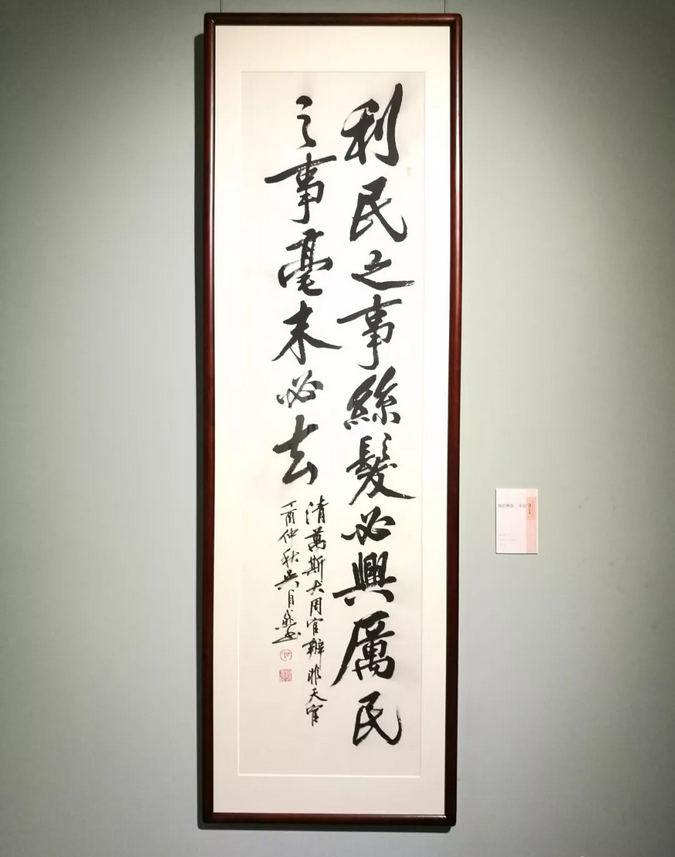 利民之事絲髮必興厲民
之事毫末必去
清萬斯大周官辨非天官
丁酉仲秋吳月